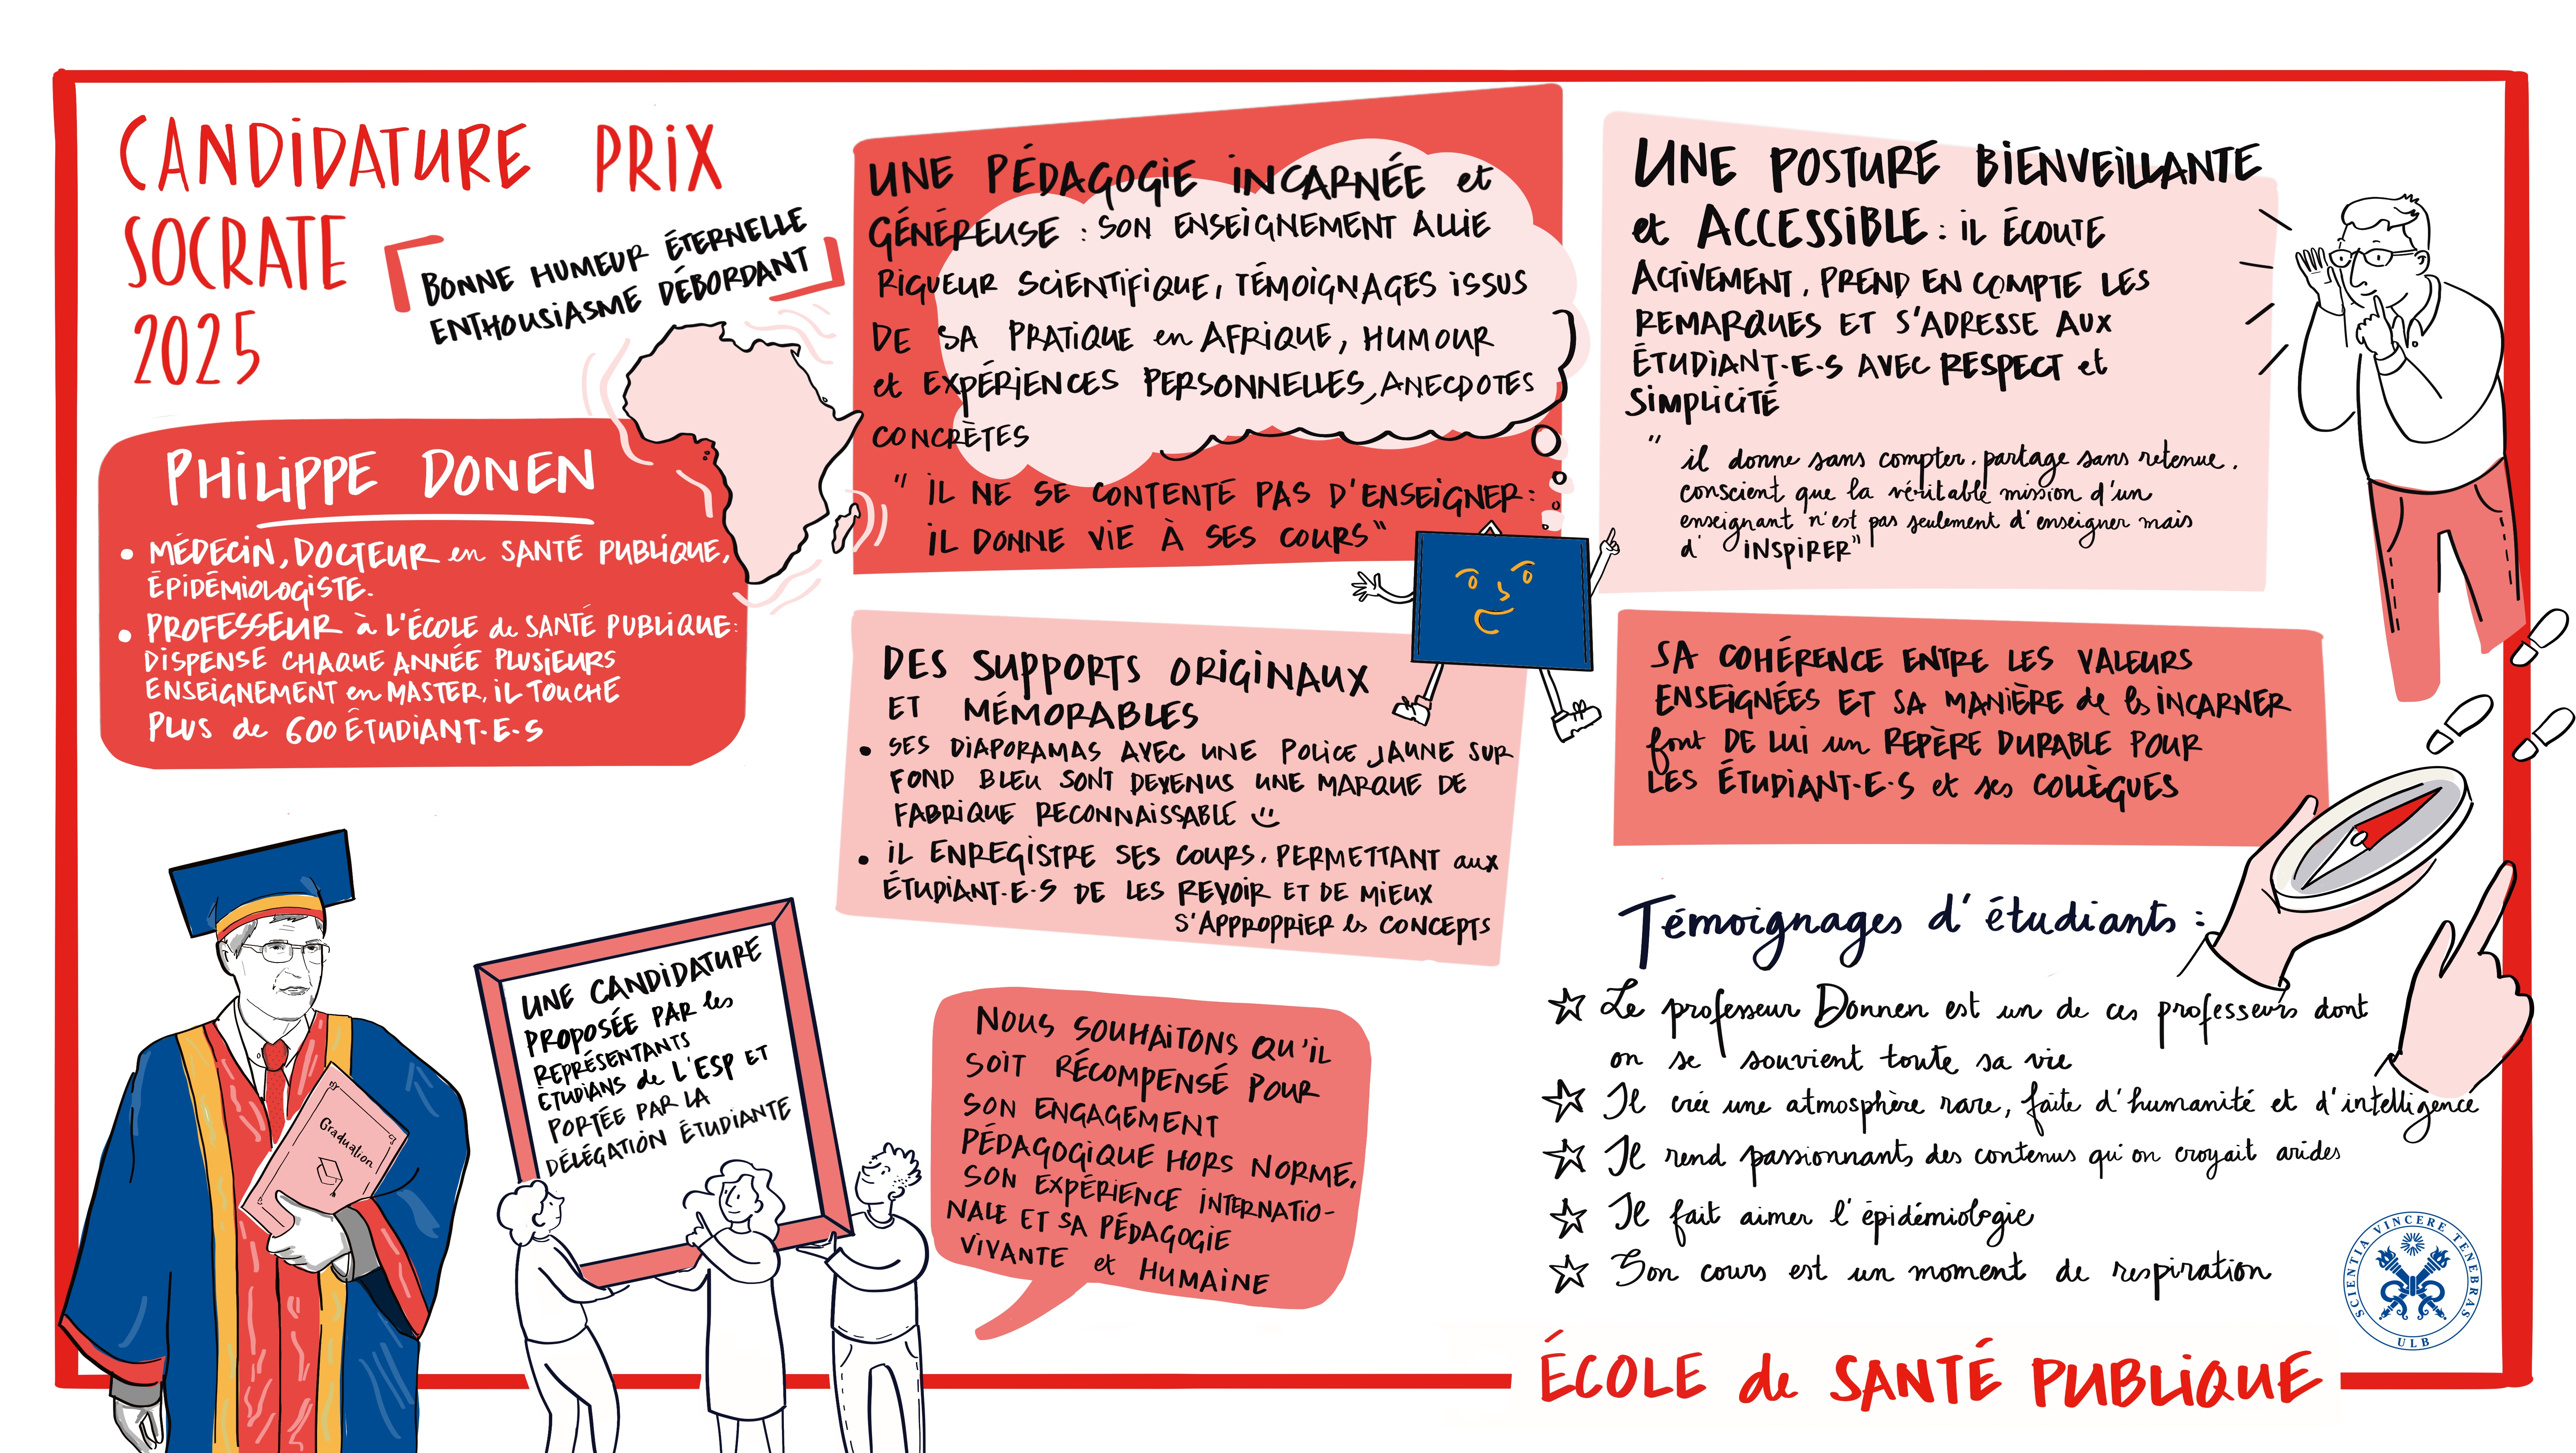 CANDIDATURE PRIX
SOCRATE
2025
BONNE HUMEUR ÉTERNELLE
ENTHOUSIASME DÉBORDANT
PHILIPPE DONEN
• MÉDECIN, DOCTEUR en SANTÉ PUBLIQUE,
ÉPIDÉMIOLOGISTE.
• PROFESSEUR à L'ÉCOLE de SANTÉ PUBLIQUE:
DISPENSE CHAQUE ANNÉE PLUSIEURS
ENSEIGNEMENT en MASTER, IL TOUCHE
PLUS de 600 ÉTUDIANT·E·S
Graduation
UNE CANDIDATURE
PROPOSÉE PAR les
REPRÉSENTANTS
ÉTUDIANS de L'ESP ET
PORTÉE PAR LA
DÉLÉGATION ÉTUDIANTE
UNE PÉDAGOGIE INCARNÉE et
GÉNÉREUSE : SON ENSEIGNEMENT ALLIE
RIGUEUR SCIENTIFIQUE, TÉMOIGNAGES ISSUS
DE SA PRATIQUE en AFRIQUE, HUMOUR
et EXPÉRIENCES PERSONNELLES, ANECDOTES
CONCRÈTES
" IL NE SE CONTENTE PAS D'ENSEIGNER:
IL DONNE VIE À SES COURS"
DES SUPPORTS ORIGINAUX
ET MÉMORABLES
• SES DIAPORAMAS AVEC UNE POLICE JAUNE SUR
FOND BLEU SONT DEVENUS UNE MARQUE DE
FABRIQUE RECONNAISSABLE
• IL ENREGISTRE SES COURS, PERMETTANT aux
ÉTUDIANT·E·S DE LES REVOIR ET DE MIEUX
S'APPROPRIER les CONCEPTS
NOUS SOUHAITONS QU'IL
SOIT RÉCOMPENSÉ POUR
SON ENGAGEMENT
PÉDAGOGIQUE HORS NORME,
SON EXPÉRIENCE INTERNATIO-
NALE ET SA PÉDAGOGIE
VIVANTE et HUMAINE
UNE POSTURE BIENVEILLANTE
et ACCESSIBLE : IL ÉCOUTE
ACTIVEMENT, PREND EN COMPTE LES
REMARQUES ET S'ADRESSE AUX
ÉTUDIANT·E·S AVEC RESPECT et
SIMPLICITÉ
" il donne sans compter, partage sans retenue,
conscient que la véritable mission d'un
enseignant n'est pas seulement d'enseigner mais
d' INSPIRER"
SA COHÉRENCE ENTRE LES VALEURS
ENSEIGNÉES ET SA MANIÈRE de les INCARNER
font DE LUI un REPÈRE DURABLE POUR
LES ÉTUDIANT·E·S et ses COLLÈGUES
Témoignages d'étudiants :
Le professeur Donnen est un de ces professeurs dont
on se souvient toute sa vie
Il crée une atmosphère rare, faite d'humanité et d'intelligence
Il rend passionnants des contenus qu'on croyait arides
Il fait aimer l'épidémiologie
Son cours est un moment de respiration
SCIENTIA VINCERE TENEBRAS
ULB
ÉCOLE de SANTÉ PUBLIQUE